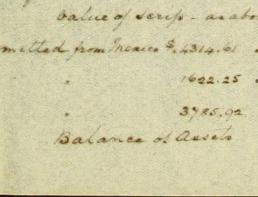 Value of scrip - as abo
mitted from Mexico $.4314.61
" 1622.25
" 3785.92
Balance of Assets